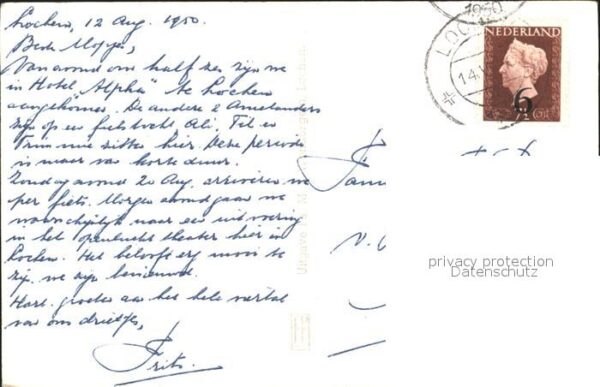 Lochem, 12 Aug. 1950.
Beste Mopjes,
Vanavond om half zes zijn we
in Hotel "Alpha" te Lochem
aangekomen. De andere 2 Amelanders
zijn op een fietstocht. Ali, Til en
Truus zitten hier. Deze periode
is maar van korte duur.
Zondagavond 20 Aug. arriveren we
per fiets. Morgen avond gaan we
waarschijnlijk naar een uitvoering
in het openlucht theater hier in
Lochem. Het belooft erg mooi te
zijn, we zijn benieuwd.
Hart. groeten aan het hele
van ons drietjes,
Frits.
Uitgave
Lochem
Fam
V.
1950
LOC
14.
NEDERLAND
6
privacy protection
Datenschutz